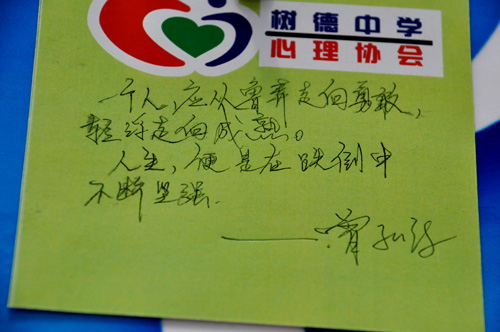 树德中学
心理协会
个人,应从鲁莽走向勇敢,
轻浮走向成熟。
人生,便是在跌倒中
不断坚强.